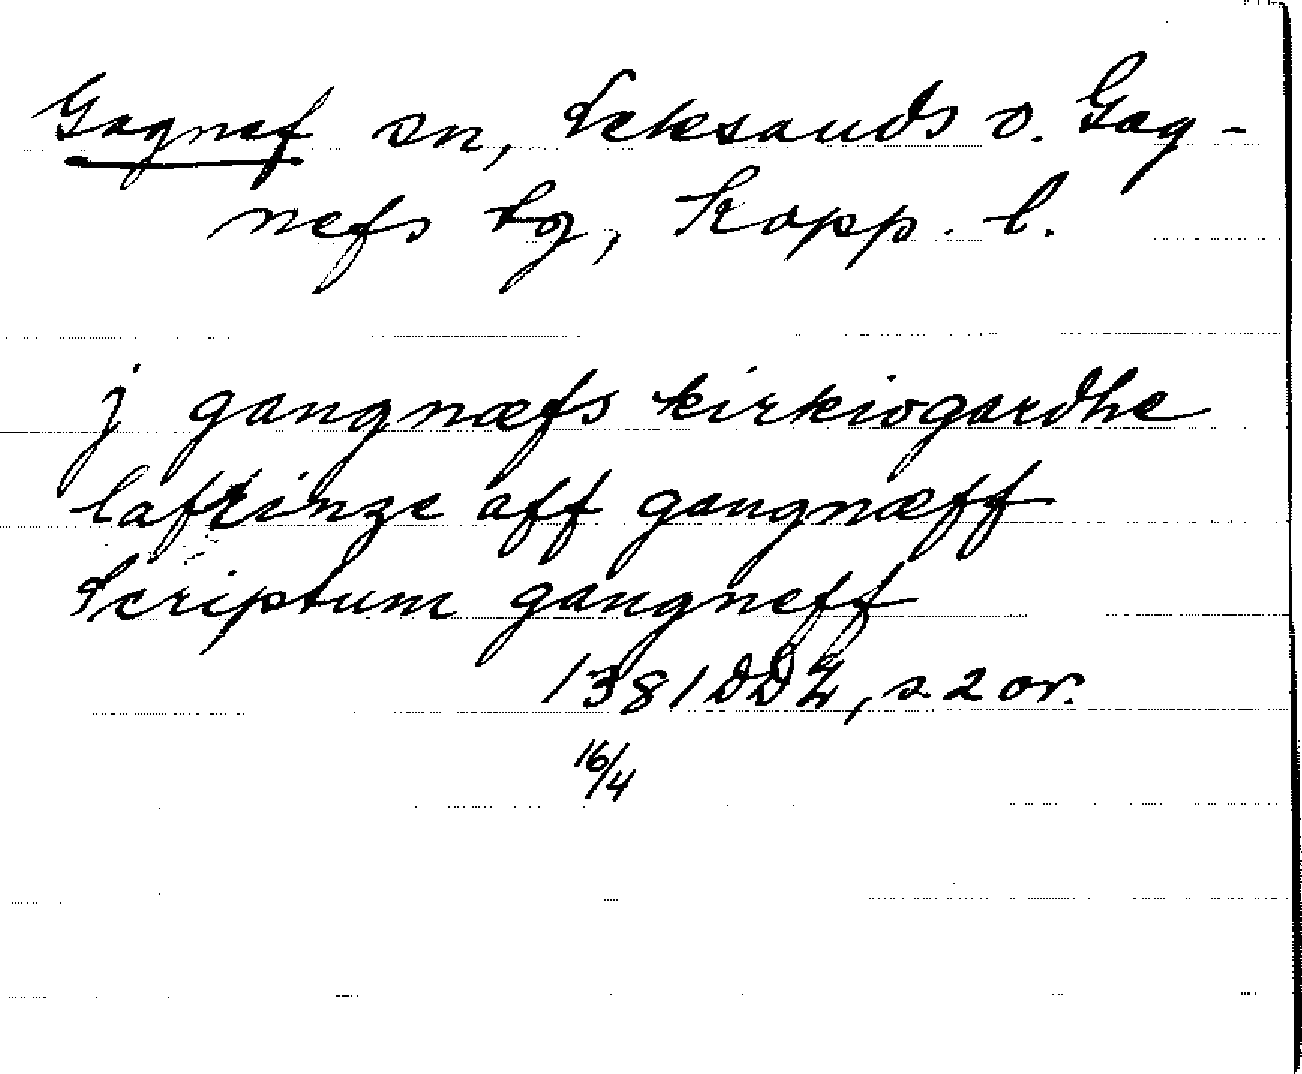 Gagnef sn, Leksands o. Gag-
nefs tg, Kopp. l.
j gangnæfs kirkiogardhe
lafrinze aff gangnæff
Scriptum gangneff
1381 DD 4, s 2 or.
16/4